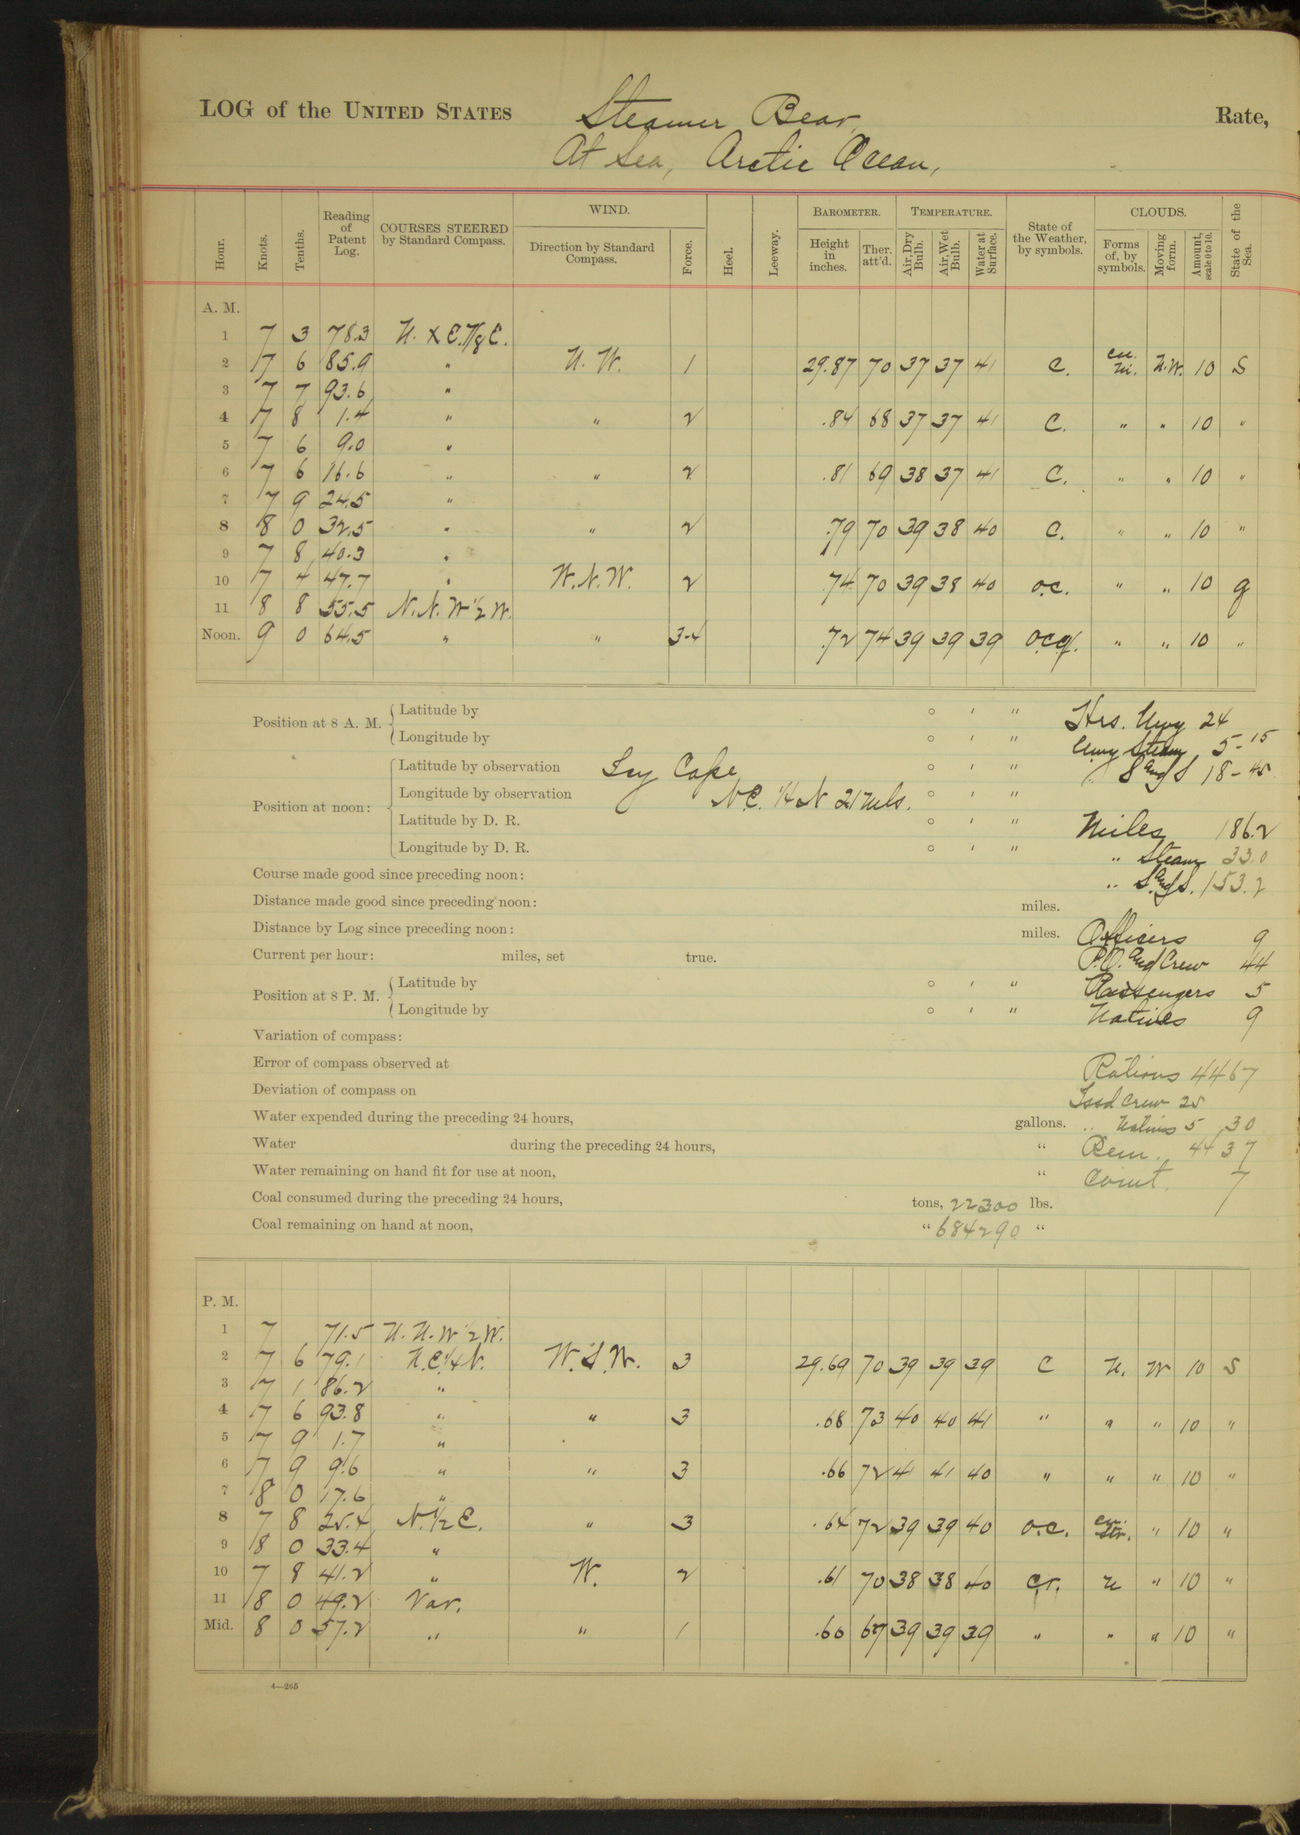 LOG of the UNITED STATES Steamer Bear, Rate,
At Sea, Arctic Ocean,
Hour. Knots. Tenths. Reading of Patent Log. COURSES STEERED by Standard Compass. WIND. Direction by Standard Compass. Force. Heel. Leeway. BAROMETER. Height in inches. Ther. att'd. TEMPERATURE. Air, Dry Bulb. Air, Wet Bulb. Water at Surface. State of the Weather, by symbols. CLOUDS. Forms of, by symbols. Moving form. Amount, scale 0 to 10. State of the Sea.
A. M.
1 7 3 78.3 N. x E. 7/8 E.
2 7 6 85.9 " N. W. 1 29.87 70 37 37 41 C. cu. ni. N.W. 10 S
3 7 7 93.6 "
4 7 8 1.4 " " 2 .84 68 37 37 41 C. " " 10 "
5 7 6 9.0 "
6 7 6 16.6 " " 2 .81 69 38 37 41 C. " " 10 "
7 7 9 24.5 "
8 8 0 32.5 " " 2 .79 70 39 38 40 C. " " 10 "
9 7 8 40.3 "
10 7 4 47.7 " W.N.W. 2 .74 70 39 38 40 o.c. " " 10 g
11 8 8 55.5 N.N.W 1/2 W.
Noon. 9 0 64.5 " " 3-4 .72 74 39 39 39 o.c.q. " " 10 "
Position at 8 A. M. Latitude by ° ' " Hrs. Uwy 24
Longitude by ° ' " Uwy Steam 5-15
Position at noon: Latitude by observation Icy Cape ° ' " " S and S 18-45
Longitude by observation N.E. 1/4 N 21 mls. ° ' "
Latitude by D. R. ° ' " Miles 186.2
Longitude by D. R. ° ' " " Steam 33.0
Course made good since preceding noon: " S. and S. 153.2
Distance made good since preceding noon: miles.
Distance by Log since preceding noon: miles. Officers 9
Current per hour: miles, set true. P.O. and Crew 44
Position at 8 P. M. Latitude by ° ' " Passengers 5
Longitude by ° ' " Natives 9
Variation of compass:
Error of compass observed at Rations 4467
Deviation of compass on Issd Crew 25
Water expended during the preceding 24 hours, gallons. " Natives 5 30
Water during the preceding 24 hours, " Rem. 4437
Water remaining on hand fit for use at noon, " Comt. 7
Coal consumed during the preceding 24 hours, tons, 22300 lbs.
Coal remaining on hand at noon, " 684290 "
P. M.
1 7 71.5 N. N. W 1/2 W.
2 7 6 79.1 N.E. 1/4 N. W.S.W. 3 29.69 70 39 39 39 C N. W 10 S
3 7 1 86.2 "
4 7 6 93.8 " " 3 .68 73 40 40 41 " " " 10 "
5 7 9 1.7 "
6 7 9 9.6 " " 3 .66 72 41 41 40 " " " 10 "
7 8 0 17.6 "
8 7 8 25.4 N. 1/2 E. " 3 .64 72 39 39 40 o.c. cu. str. " 10 "
9 8 0 33.4 "
10 7 8 41.2 " W. 2 .61 70 38 38 40 c.r. n " 10 "
11 8 0 49.2 Var.
Mid. 8 0 57.2 " " 1 .60 67 39 39 39 " " " 10 "
4—265